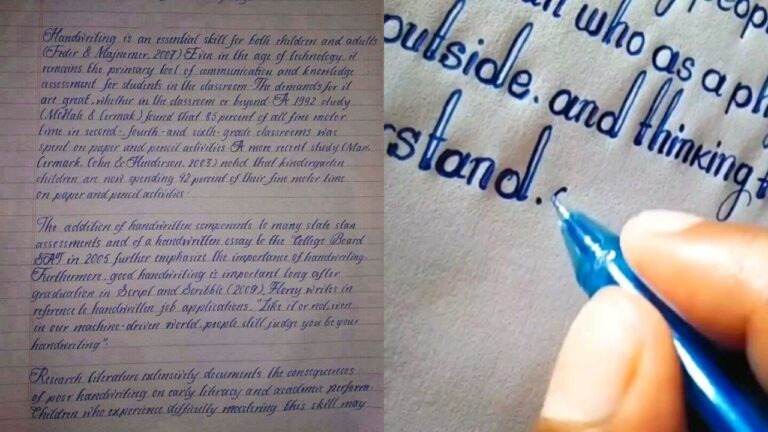 Handwriting is an essential skill for both children and adults
(Feder & Majnemer, 2007) Even in the age of technology, it
remains the primary tool of communication and knowledge
assessment for students in the classroom. The demands for it
are great, whether in the classroom or beyond. A 1992 study
(McHale & Cermak) found that 85 percent of all fine motor
time in second-, fourth- and sixth-grade classrooms was
spent on paper and pencil activities A more recent study (Marr,
Cermark, Cohn & Henderson, 2003) noted that kindergarten
children are now spending 42 percent of their fine motor time
on paper and pencil activities.
The addition of handwritten components to many state stan
assessments and of a handwritten essay to the College Board
SAT in 2005 further emphasize the importance of handwriting.
Furthermore, good handwriting is important long after
graduation in Script and Scribble (2009), Florey writes in
reference to handwritten job applications, "Like it or not, even
in our machine-driven world, people still judge you be your
handwriting".
Research literature extensively documents the consequences
of poor handwriting on early literacy and academic perform.
Children who experience difficulty mastering this skill may
peop
who as a ph
outside. and thinking
stand.